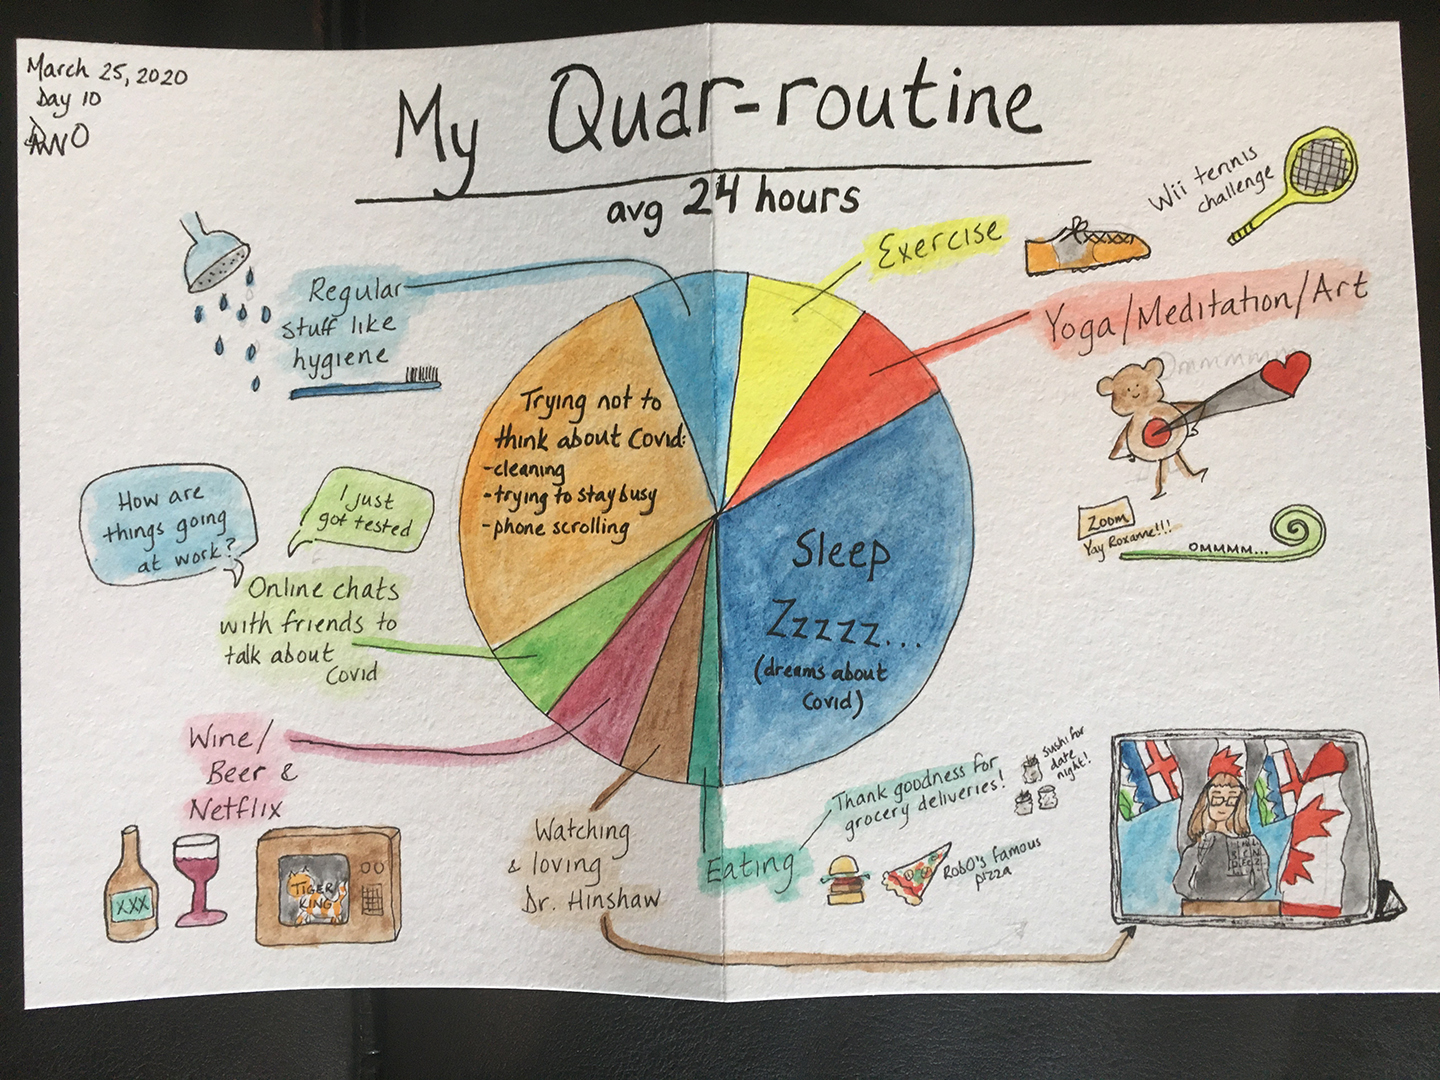 March 25, 2020
Day 10
My Quar-routine
avg 24 hours
Wii tennis
challenge
Exercise
Regular
stuff like
hygiene
Yoga/Meditation/Art
Ommmmm
Trying not to
think about Covid:
-cleaning
-trying to stay busy
-phone scrolling
How are
things going
at work?
I just
got tested
Zoom
Yay Roxanne!!!
OMMMM...
Sleep
Zzzzz...
(dreams about
Covid)
Online chats
with friends to
talk about
Covid
Wine/
Beer &
Netflix
XXX
TIGER
KING
Watching
& loving
Dr. Hinshaw
Eating
Thank goodness for
grocery deliveries!
sushi for
date
night!
RobO's famous
pizza